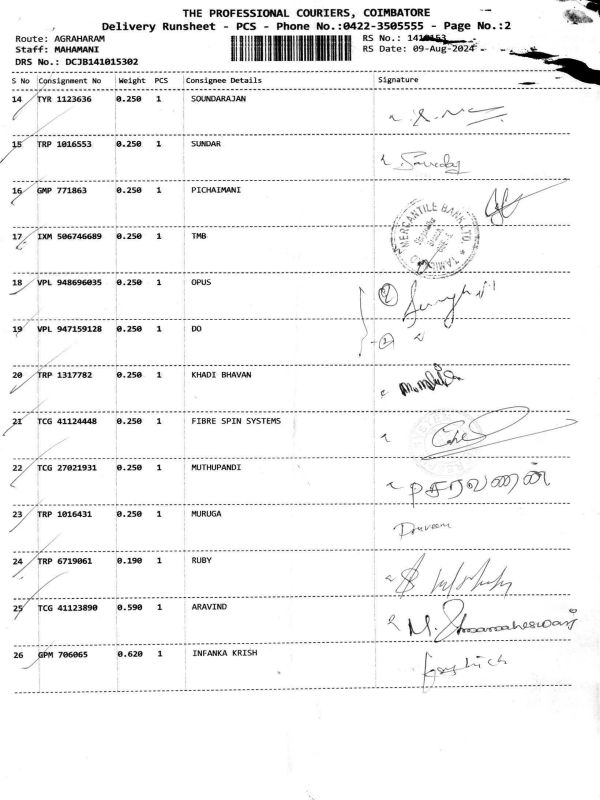 THE PROFESSIONAL COURIERS, COIMBATORE
Delivery Runsheet - PCS - Phone No.:0422-3505555 - Page No.:2
Route: AGRAHARAM
RS No.:
Staff: MAHAMANI
RS Date: 09-Aug-2024
DRS No.: DCJB141015302
S No Consignment No Weight PCS Consignee Details Signature
14 TYR 1123636 0.250 1 SOUNDARAJAN
15 TRP 1016553 0.250 1 SUNDAR
16 GMP 771863 0.250 1 PICHAIMANI
17 IXM 506746689 0.250 1 TMB MERCANTILE BANK LTD. * TAMILNAD
18 VPL 948696035 0.250 1 OPUS
19 VPL 947159128 0.250 1 DO
20 TRP 1317782 0.250 1 KHADI BHAVAN
21 TCG 41124448 0.250 1 FIBRE SPIN SYSTEMS
22 TCG 27021931 0.250 1 MUTHUPANDI சரவணன்
23 TRP 1016431 0.250 1 MURUGA Praveen
24 TRP 6719061 0.190 1 RUBY
25 TCG 41123890 0.590 1 ARAVIND
26 GPM 706065 0.620 1 INFANKA KRISH